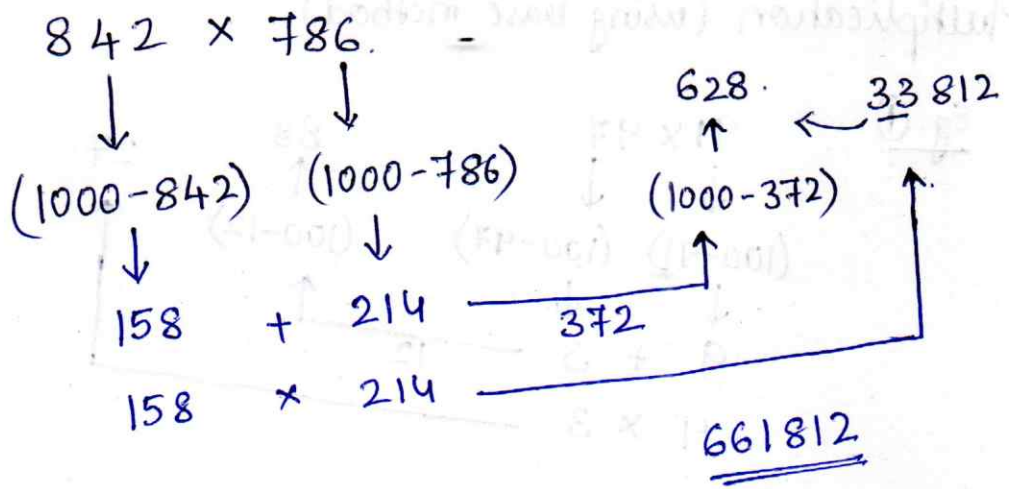 842 × 786. -
628. 33812
(1000-842) (1000-786) (1000-372)
158 + 214 372
158 × 214
661812